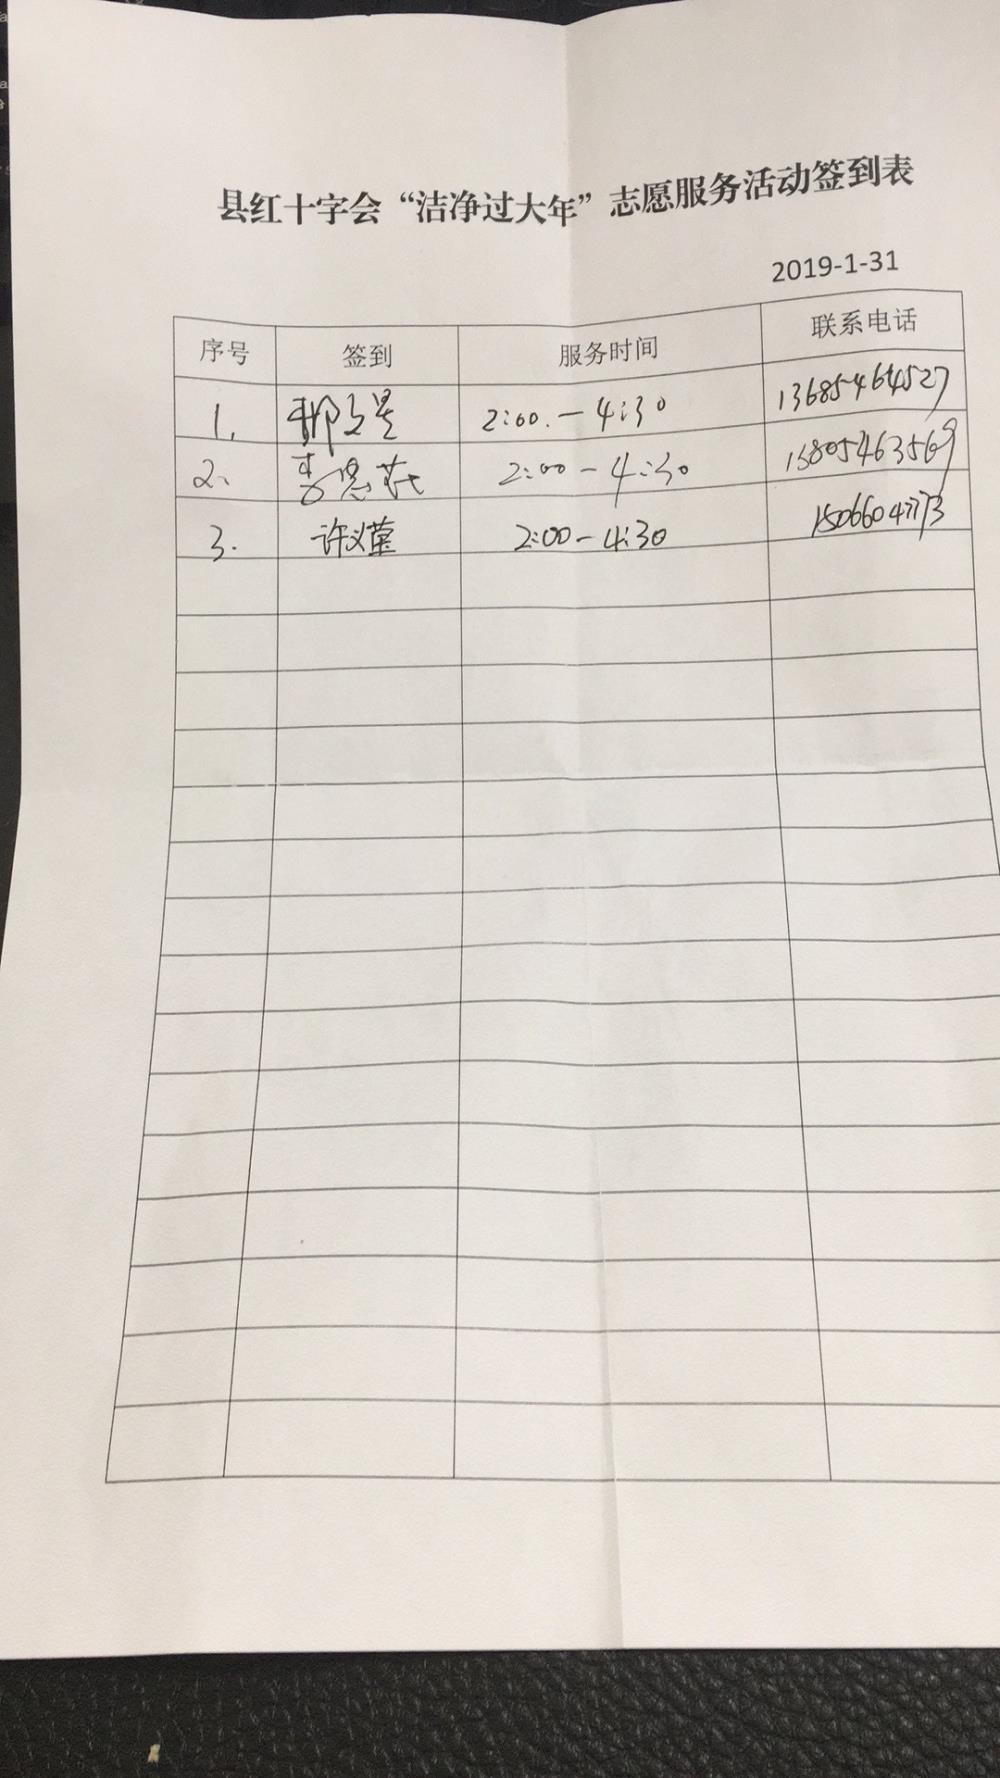 县红十字会“洁净过大年”志愿服务活动签到表
2019-1-31
序号 签到 服务时间 联系电话
1. 2:00.-4:30 13685464527
2、 李思茹 2:00-4:30 15805463569
3. 许义莹 2:00-4:30